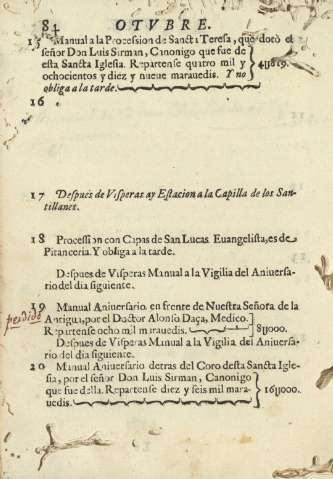 84 OTVBRE.
15 Manual a la Procession de Sancta Teresa, que dotò el
señor Don Luis Sirman, Canonigo que fue de
esta Sancta Iglesia. Repartense quatro mil y
ochocientos y diez y nueue marauedis. Y no
obliga a la tarde.
4U819.
16
17 Despues de Visperas ay Estacion a la Capilla de los San-
tillanes.
18 Procession con Capas de San Lucas Euangelista, es de
Pitanceria. Y obliga a la tarde.
Despues de Visperas Manual a la Vigilia del Aniuersa-
rio del dia siguiente.
19 Manual Aniuersario en frente de Nuestra Señora de la
perdido
Antigua, por el Doctor Alonso Daça, Medico.
Repartense ocho mil marauedis. 8U000.
Despues de Visperas Manual a la Vigilia del Aniuersa-
rio del dia siguiente.
20 Manual Aniuersario detras del Coro desta Sancta Igle-
sia, por el señor Don Luis Sirman, Canonigo
que fue della. Repartense diez y seis mil mara-
uedis. 16U000.